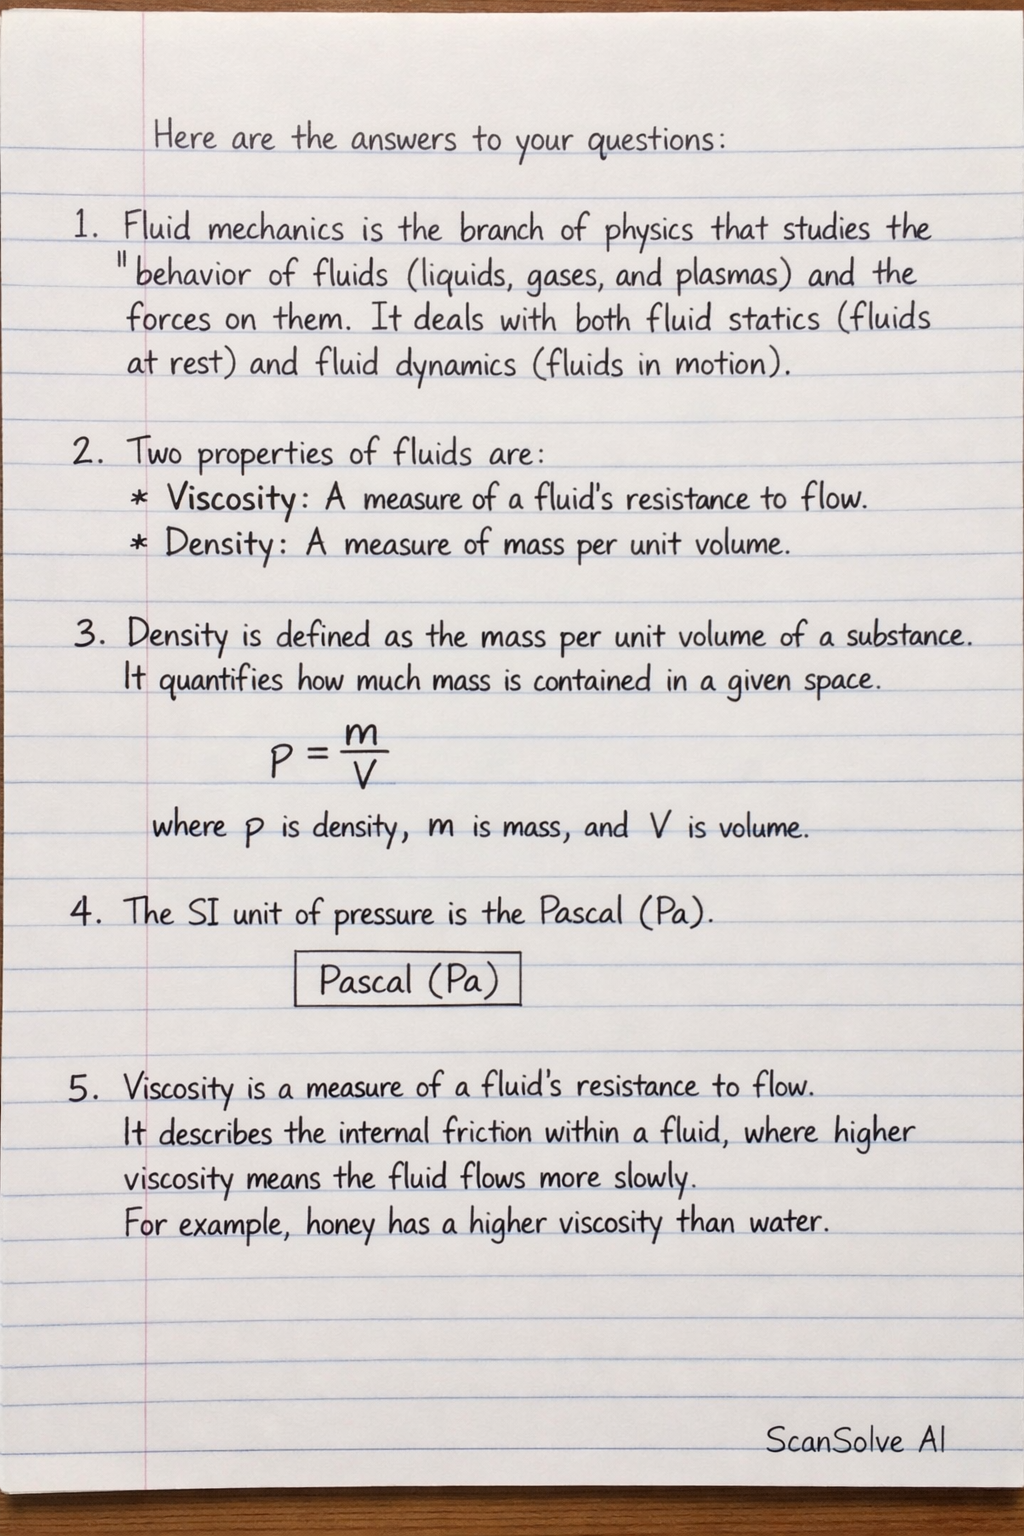 Here are the answers to your questions:
1. Fluid mechanics is the branch of physics that studies the
" behavior of fluids (liquids, gases, and plasmas) and the
forces on them. It deals with both fluid statics (fluids
at rest) and fluid dynamics (fluids in motion).
2. Two properties of fluids are:
* Viscosity: A measure of a fluid's resistance to flow.
* Density: A measure of mass per unit volume.
3. Density is defined as the mass per unit volume of a substance.
It quantifies how much mass is contained in a given space.
p = m/V
where p is density, m is mass, and V is volume.
4. The SI unit of pressure is the Pascal (Pa).
Pascal (Pa)
5. Viscosity is a measure of a fluid's resistance to flow.
It describes the internal friction within a fluid, where higher
viscosity means the fluid flows more slowly.
For example, honey has a higher viscosity than water.
ScanSolve AI